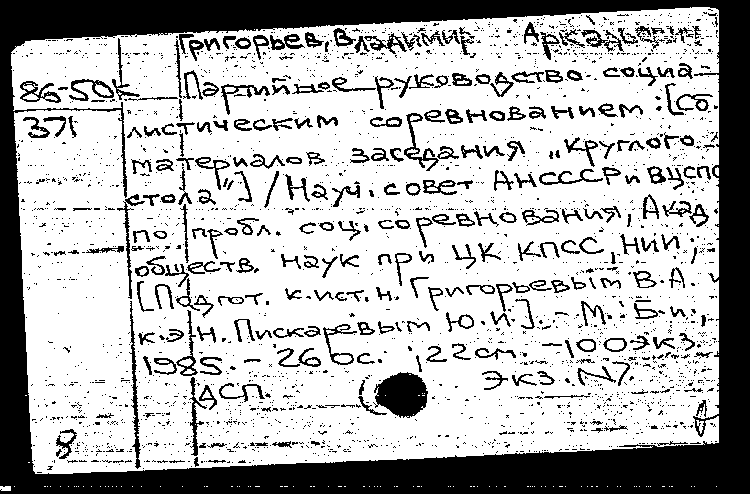 Григорьев, Владимир Аркадьевич
86-50к Партийное руководство социа-
371 листическим соревнованием: [Сб.
материалов заседания „круглого
стола"] / Науч. совет АН СССР и ВЦСПС
по пробл. соц. соревнования, Акад.
обществ. наук при ЦК КПСС, НИИ;
[Подгот. к.ист.н. Григорьевым В.А. и
к.э.н. Пискаревым Ю.И.]. - М.: Б.и.,
1985. - 260с. ; 22см. - 100экз.
ДСП. экз. N7.
8